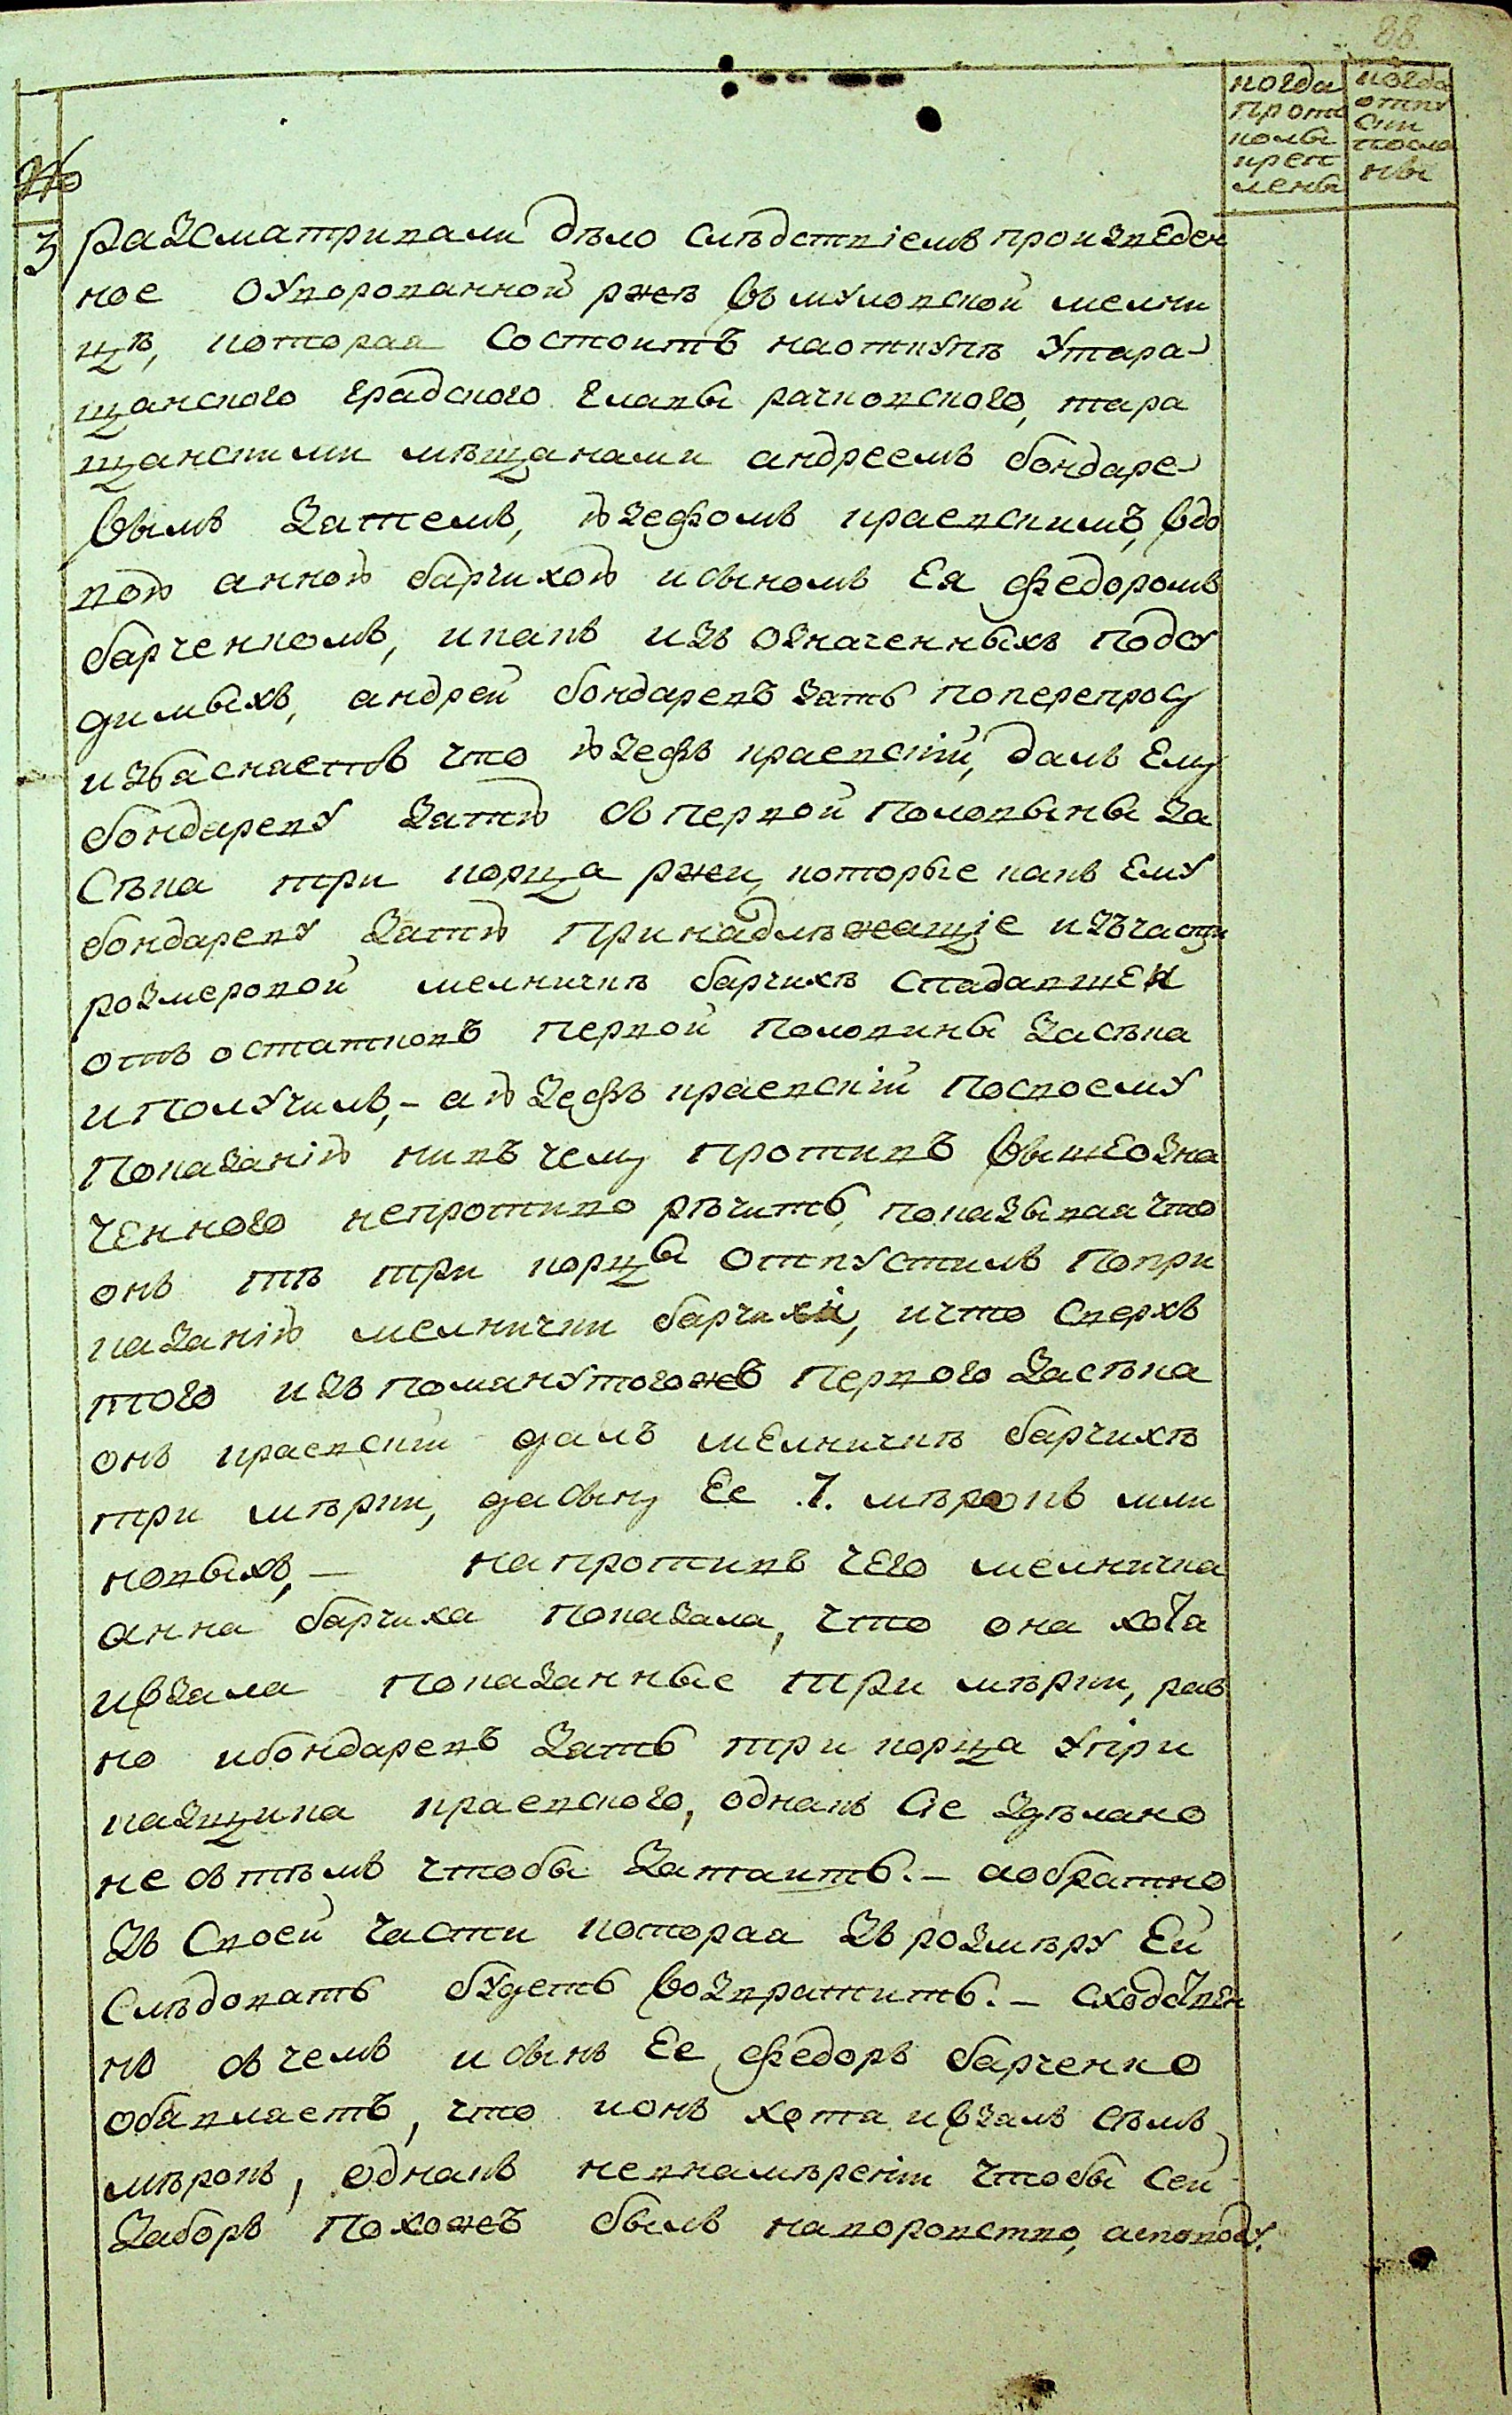 88.
когда
прото
колы
креп
лены
когда
отпу
ски
посла
ны
№
3
разсматривали дѣло слѣдствіемъ произведен
ное оуворованной ржѣ въ муловской мелни
цѣ, которая состоитъ наоткупѣ утара-
щанского градского главы рачковского, тара
щанскими мѣщанами андреемъ бондаре-
вымъ зятемъ, юзефомъ краевскимъ, вдо
вою анною барчихою исыномъ Ея федоромъ
барченкомъ, икакъ изъ означенныхъ подсу
димыхъ, андрей бондаревъ зять поперепросу
изъясняетъ что юзефъ краевскій, далъ Ему
бондареву зятю съ первой половыны за
сѣка три корца ржи, которые какъ Ему
бондареву зятю принадлѣжащіе изъчасти
розмеровой мелничкѣ барчихѣ спадавшей
отъ остатковъ первой половины засѣка
иполучилъ,- аюзефъ краевскій посвоему
показанію нивъ чему противъ вышеозна
ченного непротиво рѣчитъ, показывая что
онъ тѣ три корцы отпустилъ попри
казанію мелнички барчихи, ичто сверхъ
того изъ помянутогожъ первого засѣка
онъ краевскій далъ мелничкѣ барчихѣ
три мѣрки, дасыну Ее .7. мѣрокъ мли
новыхъ,- напротивъ чего мелничка
анна барчиха показала, что она хотя
ивзяла показанные три мѣрки, рав
но ибондаревъ зять три корца упри
кащика краевского, однакъ сіе здѣлано
не стѣмъ чтобы затаить.- аобратно
зъ своей части которая зъ розмѣру Ей
слѣдовать будетъ возвратить.- сходствен
но съ чемъ исынъ Ее федоръ барченко
объявляетъ, что ионъ хотя ивзялъ сѣмъ
мѣрокъ, однакъ невнамѣреніи чтобы сей
заборъ похожъ былъ наворовство, асповоду.